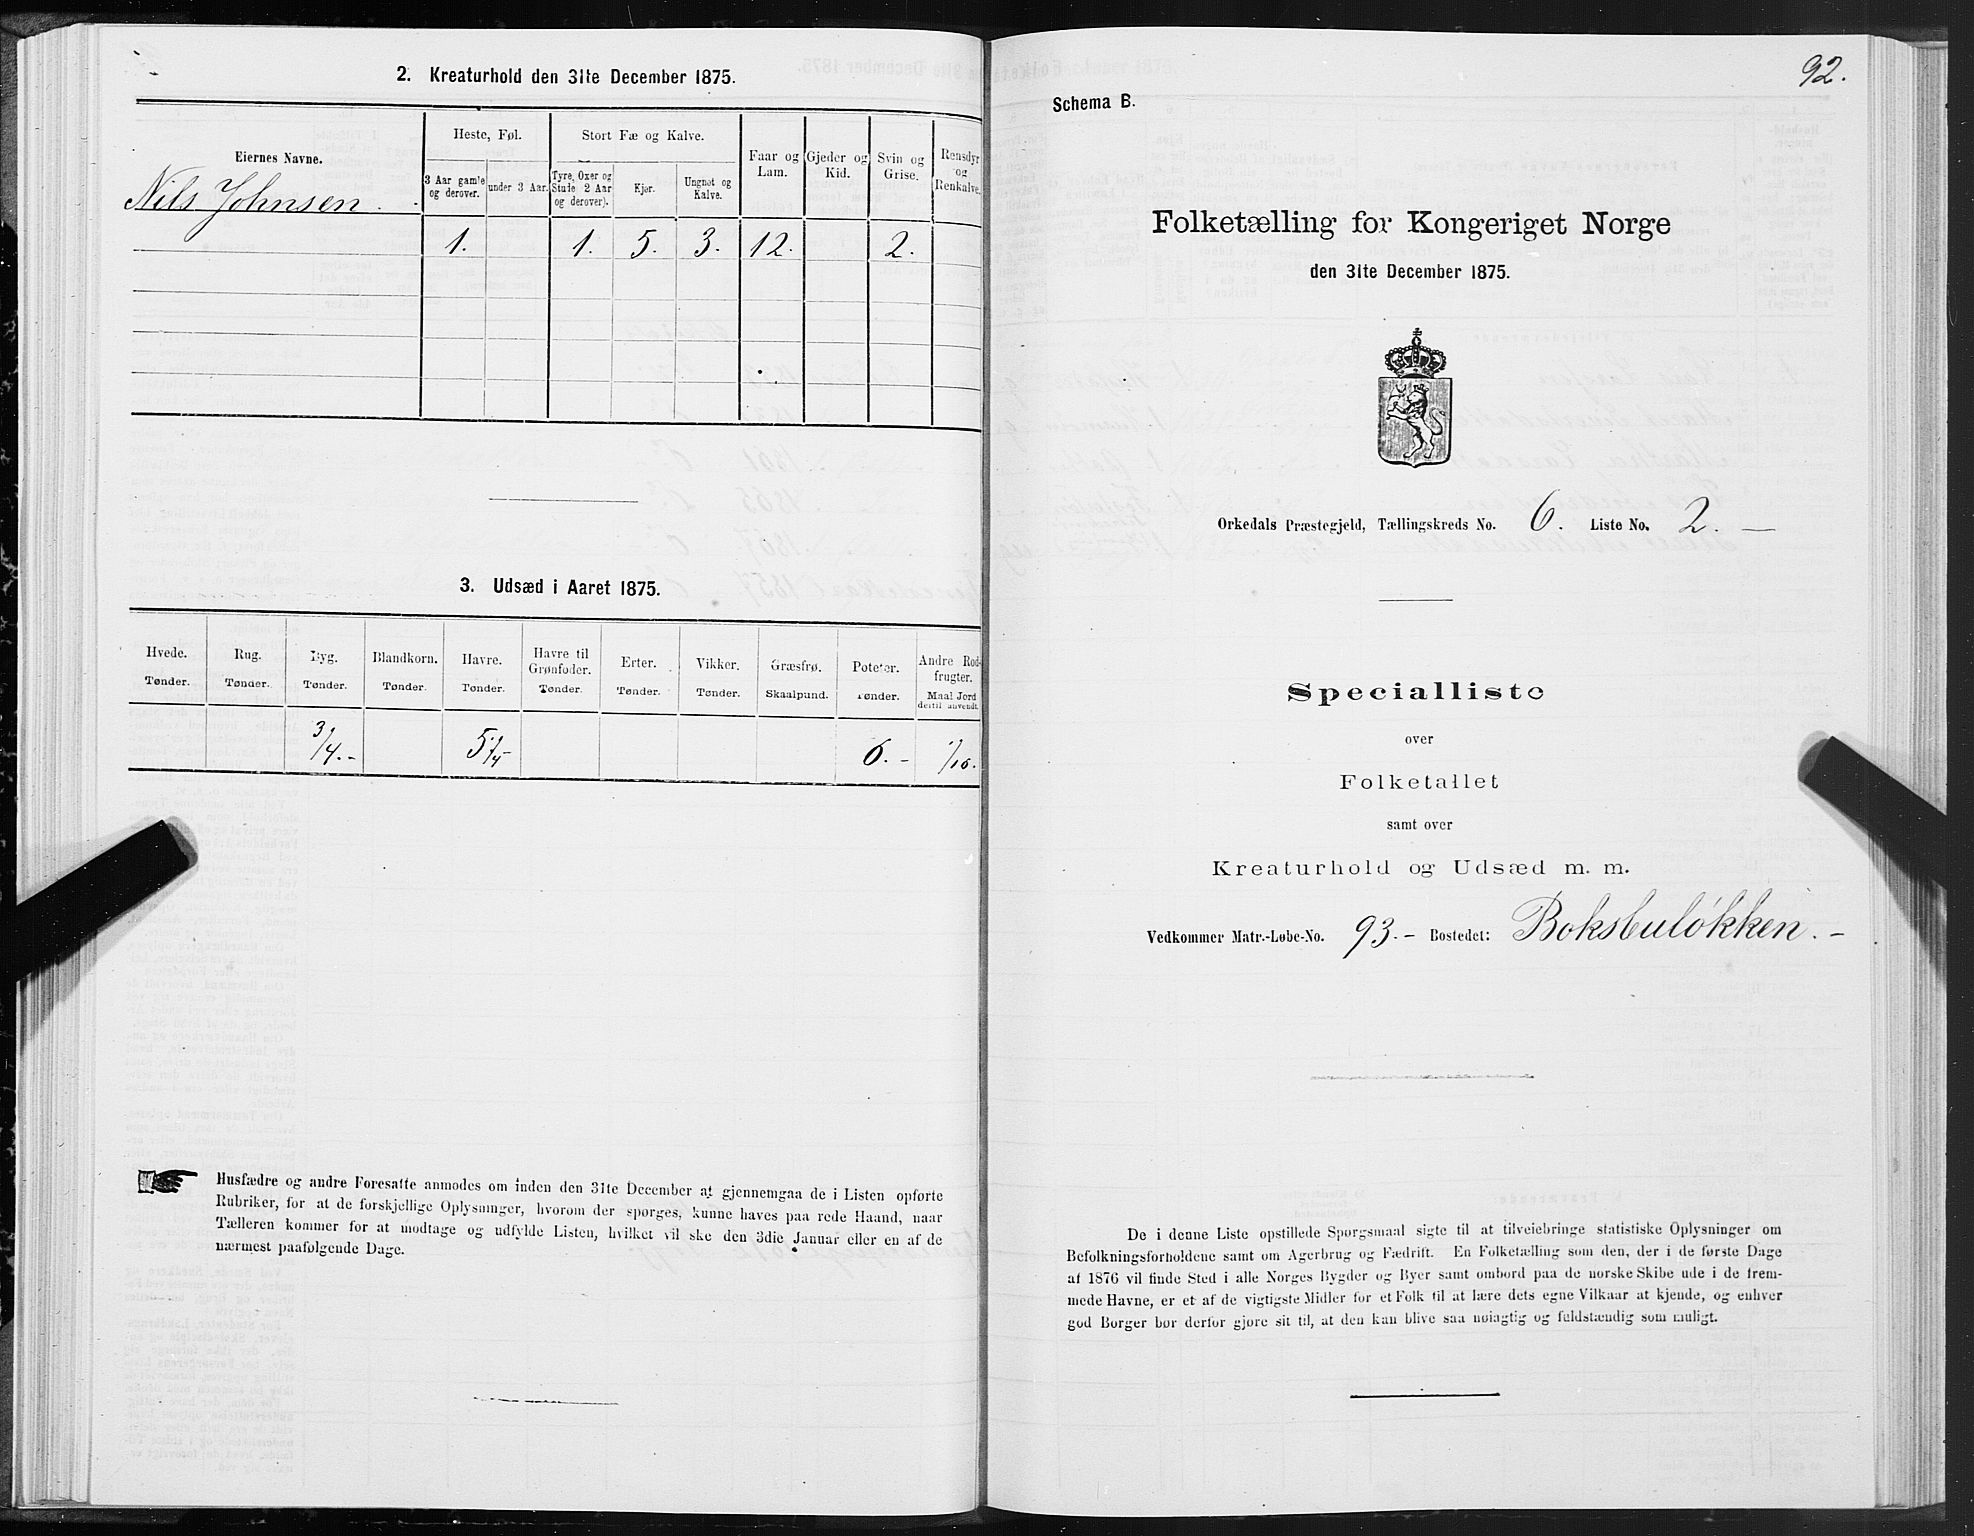 2. Kreaturhold den 31te December 1875.
Eiernes Navne.
Heste, Føl.
Stort Fæ og Kalve.
Faar og Lam.
Gjeder og Kid.
Svin og Grise.
Rensdyr og Renkalve.
3 Aar gamle og derover.
under 3 Aar.
Tyre, Oxer og Stude 2 Aar og derover).
Kjør.
Ungnøt og Kalve.
Nils Johnsen.
1. 1. 5. 3. 12. 2.
3. Udsæd i Aaret 1875.
Hvede. Rug. Byg. Blandkorn. Havre. Havre til Grønfoder. Erter. Vikker. Græsfrø. Poteter. Andre Rodfrugter.
Tønder. Tønder. Tønder. Tønder. Tønder. Tønder. Tønder. Tønder. Skaalpund. Tønder. Maal Jord dertil anvendt.
3/4.- 5 1/4- 6.- 1/10.
Husfædre og andre Foresatte anmodes om inden den 31te December at gjennemgaa de i Listen opførte
Rubriker, for at de forskjellige Oplysninger, hvorom der spørges, kunne haves paa rede Haand, naar
Tælleren kommer for at modtage og udfylde Listen, hvilket vil ske den 3die Januar eller en af de
nærmest paafølgende Dage.
92.
Schema B.
Folketælling for Kongeriget Norge
den 31te December 1875.
Orkedals Præstegjeld, Tællingskreds No. 6. Liste No. 2. -
Specialliste
over
Folketallet
samt over
Kreaturhold og Udsæd m. m.
Vedkommer Matr.-Løbe-No. 93. - Bostedet:Boksbuløkken. -
De i denne Liste opstillede Spørgsmaal sigte til at tilveiebringe statistiske Oplysninger om
Befolkningsforholdene samt om Agerbrug og Fædrift. En Folketælling som den, der i de første Dage
af 1876 vil finde Sted i alle Norges Bygder og Byer samt ombord paa de norske Skibe ude i de frem-
mede Havne, er et af de vigtigste Midler for et Folk til at lære dets egne Vilkaar at kjende, og enhver
god Borger bør derfor gjøre sit til, at den kan blive saa nøiagtig og fuldstændig som muligt.